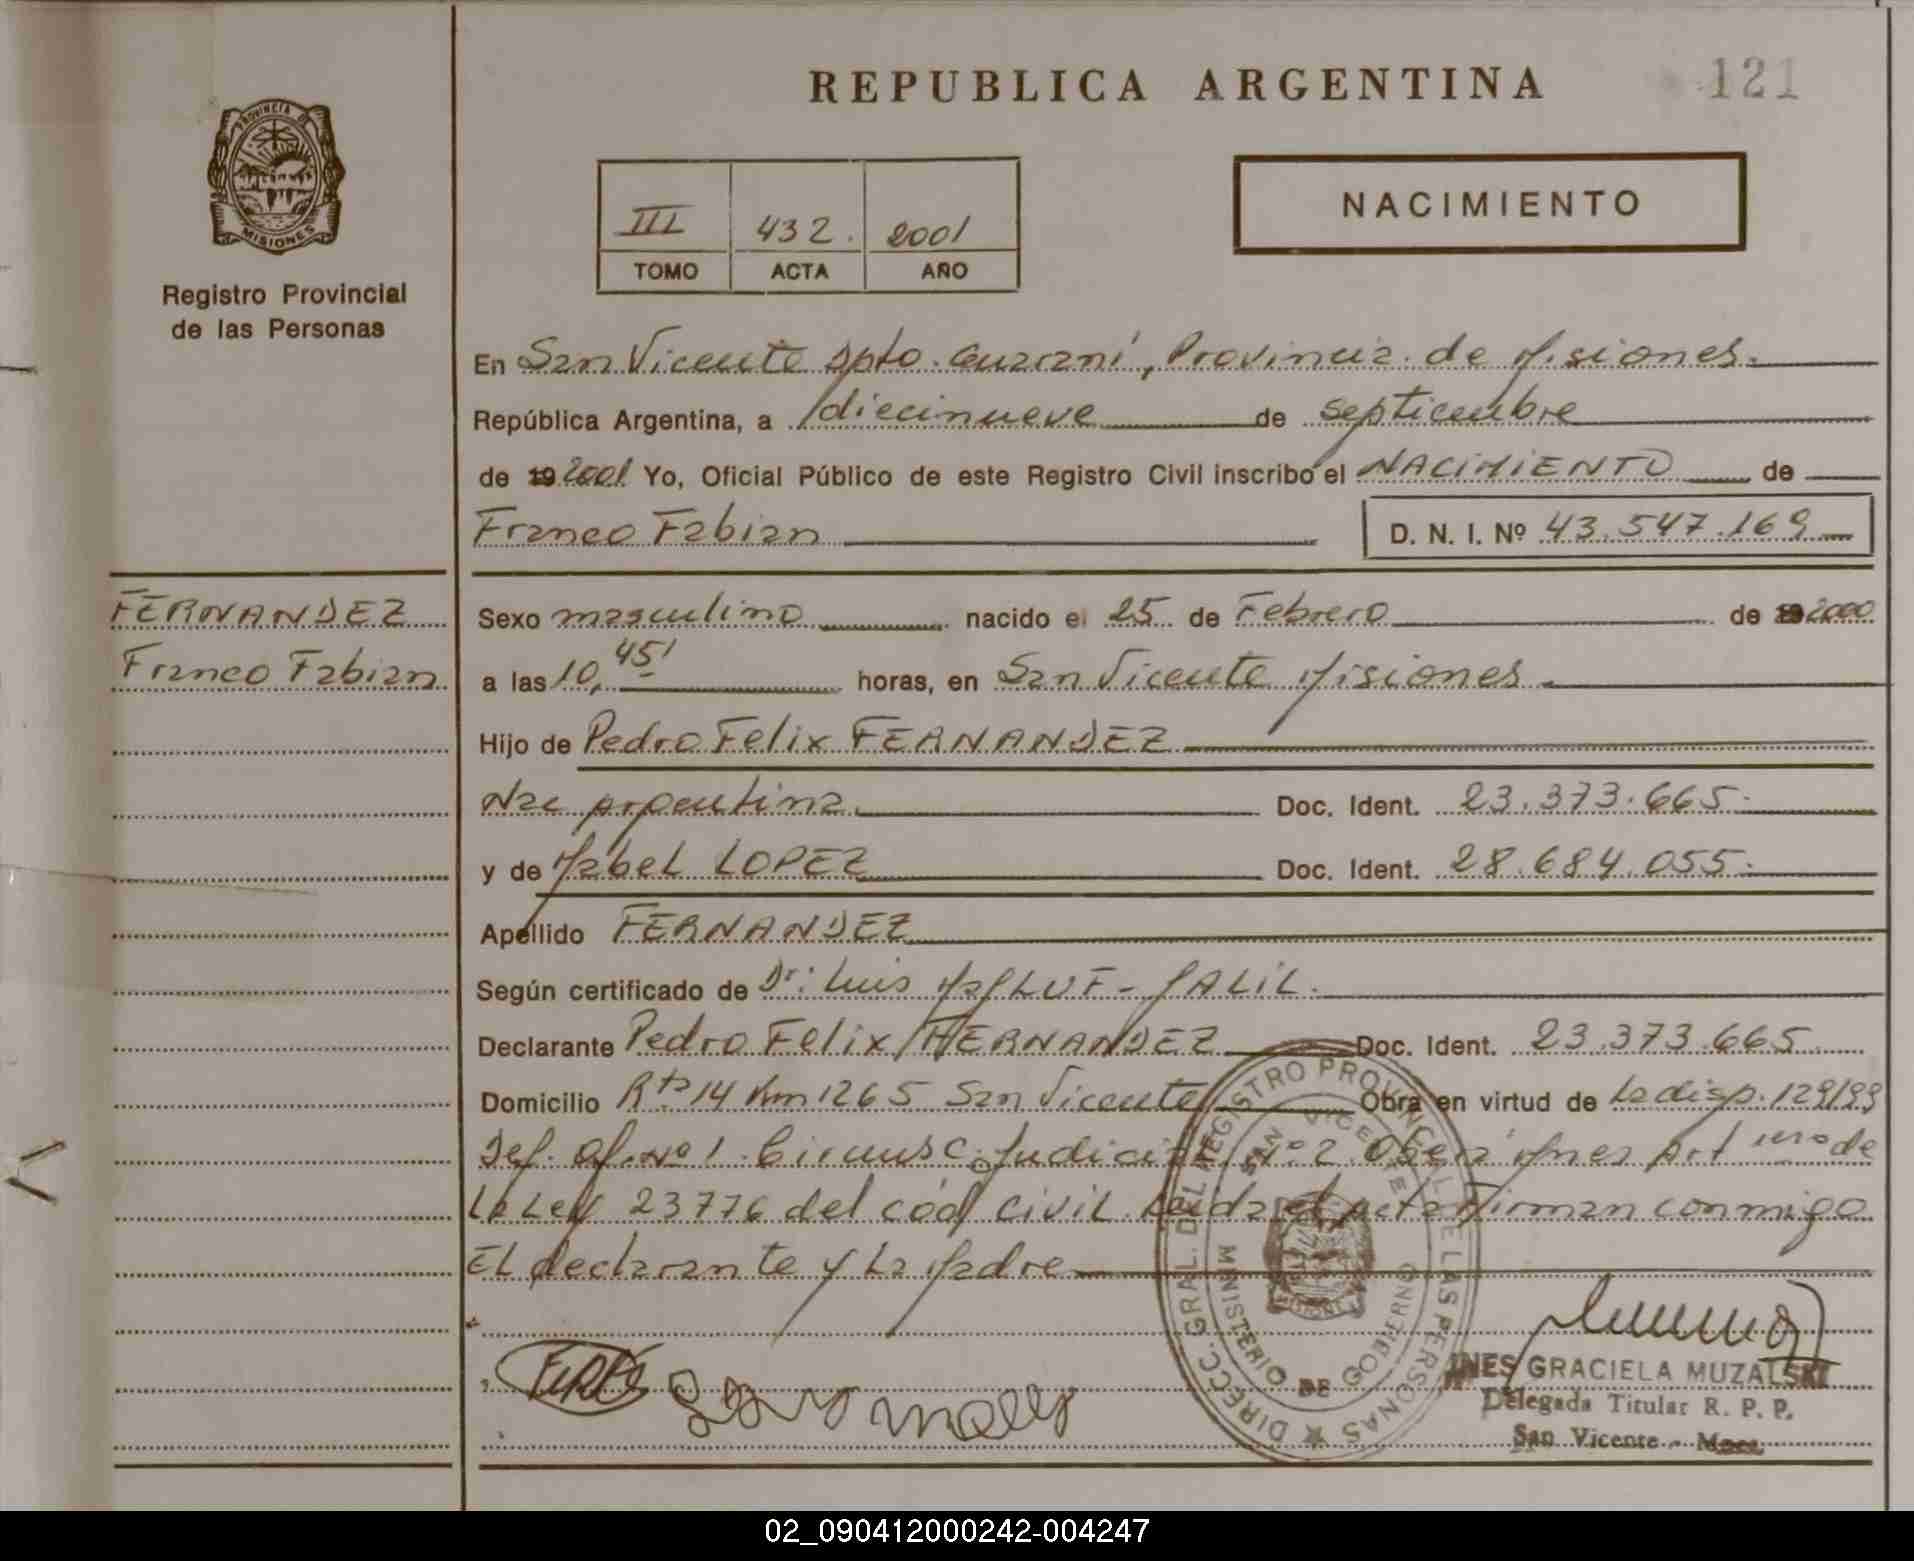 REPUBLICA ARGENTINA
121
PROVINCIA DE
MISIONES
Registro Provincial
de las Personas
III 432. 2001
TOMO ACTA AÑO
NACIMIENTO
En San Vicente Dpto. Guaraní, Provincia de Misiones.
República Argentina, a diecinueve de septiembre
de 19 2001 Yo, Oficial Público de este Registro Civil inscribo el NACIMIENTO de
Franco Fabian
D. N. I. Nº 43.547.169
FERNANDEZ
Franco Fabian
Sexo masculino nacido el 25 de Febrero de 19 2000
a las 10,45' horas, en San Vicente Misiones.
Hijo de Pedro Felix FERNANDEZ
Nac Argentina Doc. Ident. 23.373.665.
y de Mabel LOPEZ Doc. Ident. 28.684.055.
Apellido FERNANDEZ
Según certificado de Dr: Luis - JALIL.
Declarante Pedro Felix FERNANDEZ Doc. Ident. 23.373.665
Domicilio Rta 14 Km 1265 San Vicente Obra en virtud de la disp. 129/99
Def. Of. Nº 1 Circunsc. Judicial Nº 2 Oberá Mnes Art de
la Ley 23776 del cód civil Leida el acta Firman conmigo
El declarante y la Madre
DIRECC. GRAL. DEL REGISTRO PROVINCIAL DE LAS PERSONAS
SAN VICENTE
MINISTERIO DE GOBIERNO
MISIONES
INES GRACIELA MUZALSKI
Delegada Titular R. P. P.
San Vicente - Mnes
02_090412000242-004247